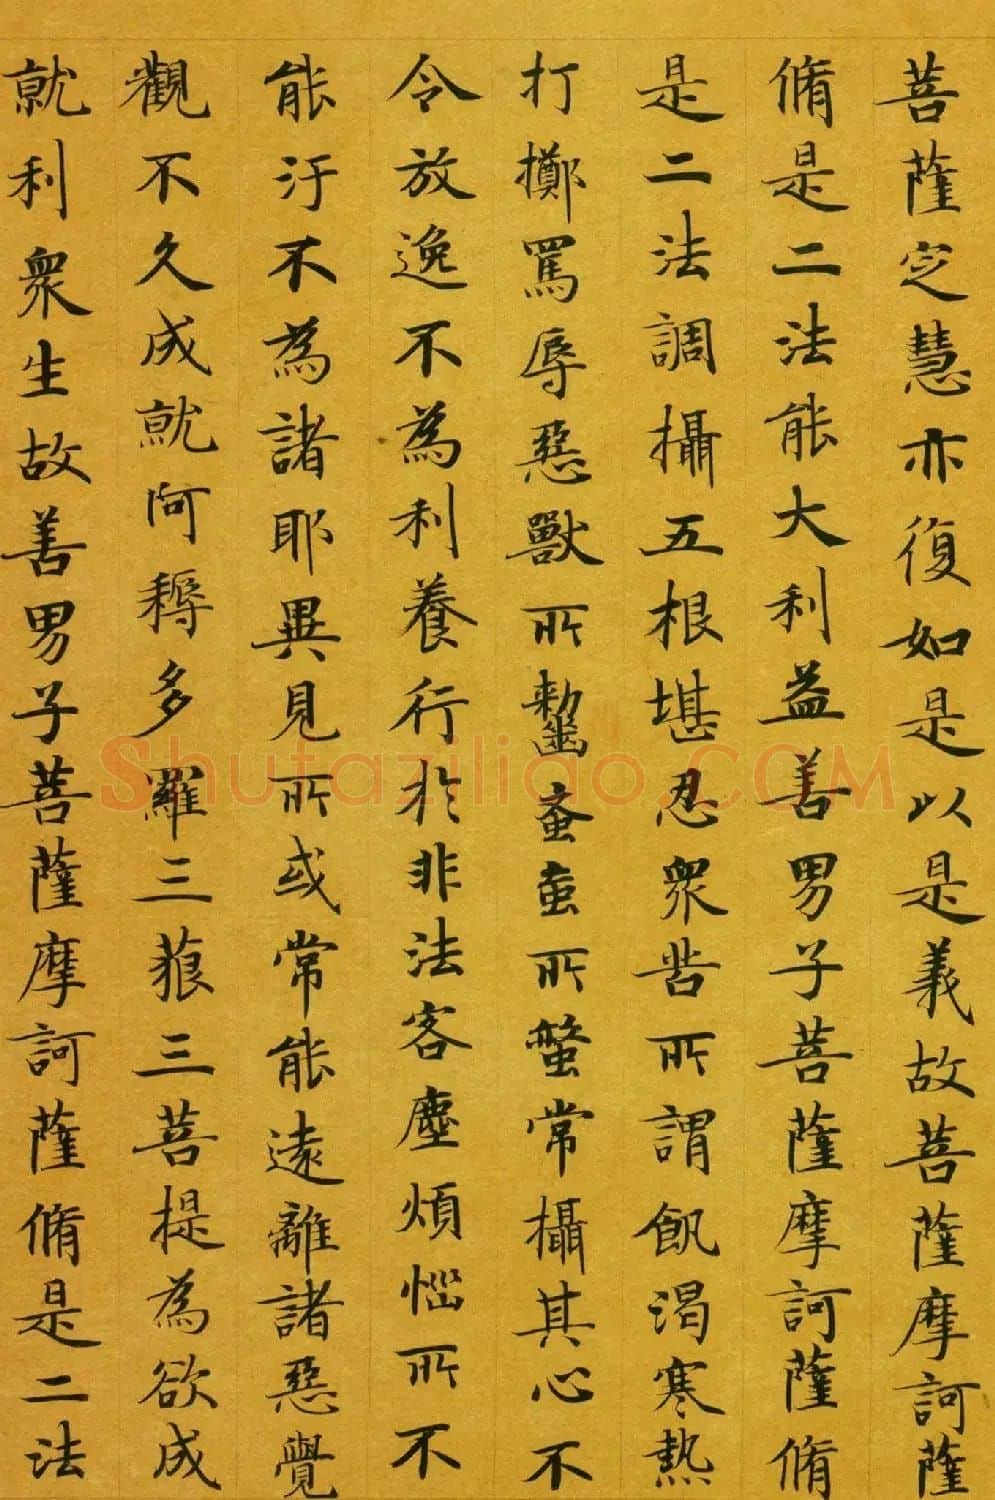 菩薩定慧亦復如是以是義故菩薩摩訶薩
脩是二法能大利益善男子菩薩摩訶薩脩
是二法調攝五根堪忍衆苦所謂飢渴寒熱
打擲罵辱惡獸所齧蚤蝱所螫常攝其心不
令放逸不為利養行於非法客塵煩惱所不
能汙不為諸耶異見所或常能遠離諸惡覺
觀不久成就阿耨多羅三藐三菩提為欲成
就利衆生故善男子菩薩摩訶薩脩是二法
Shufaziliao.COM